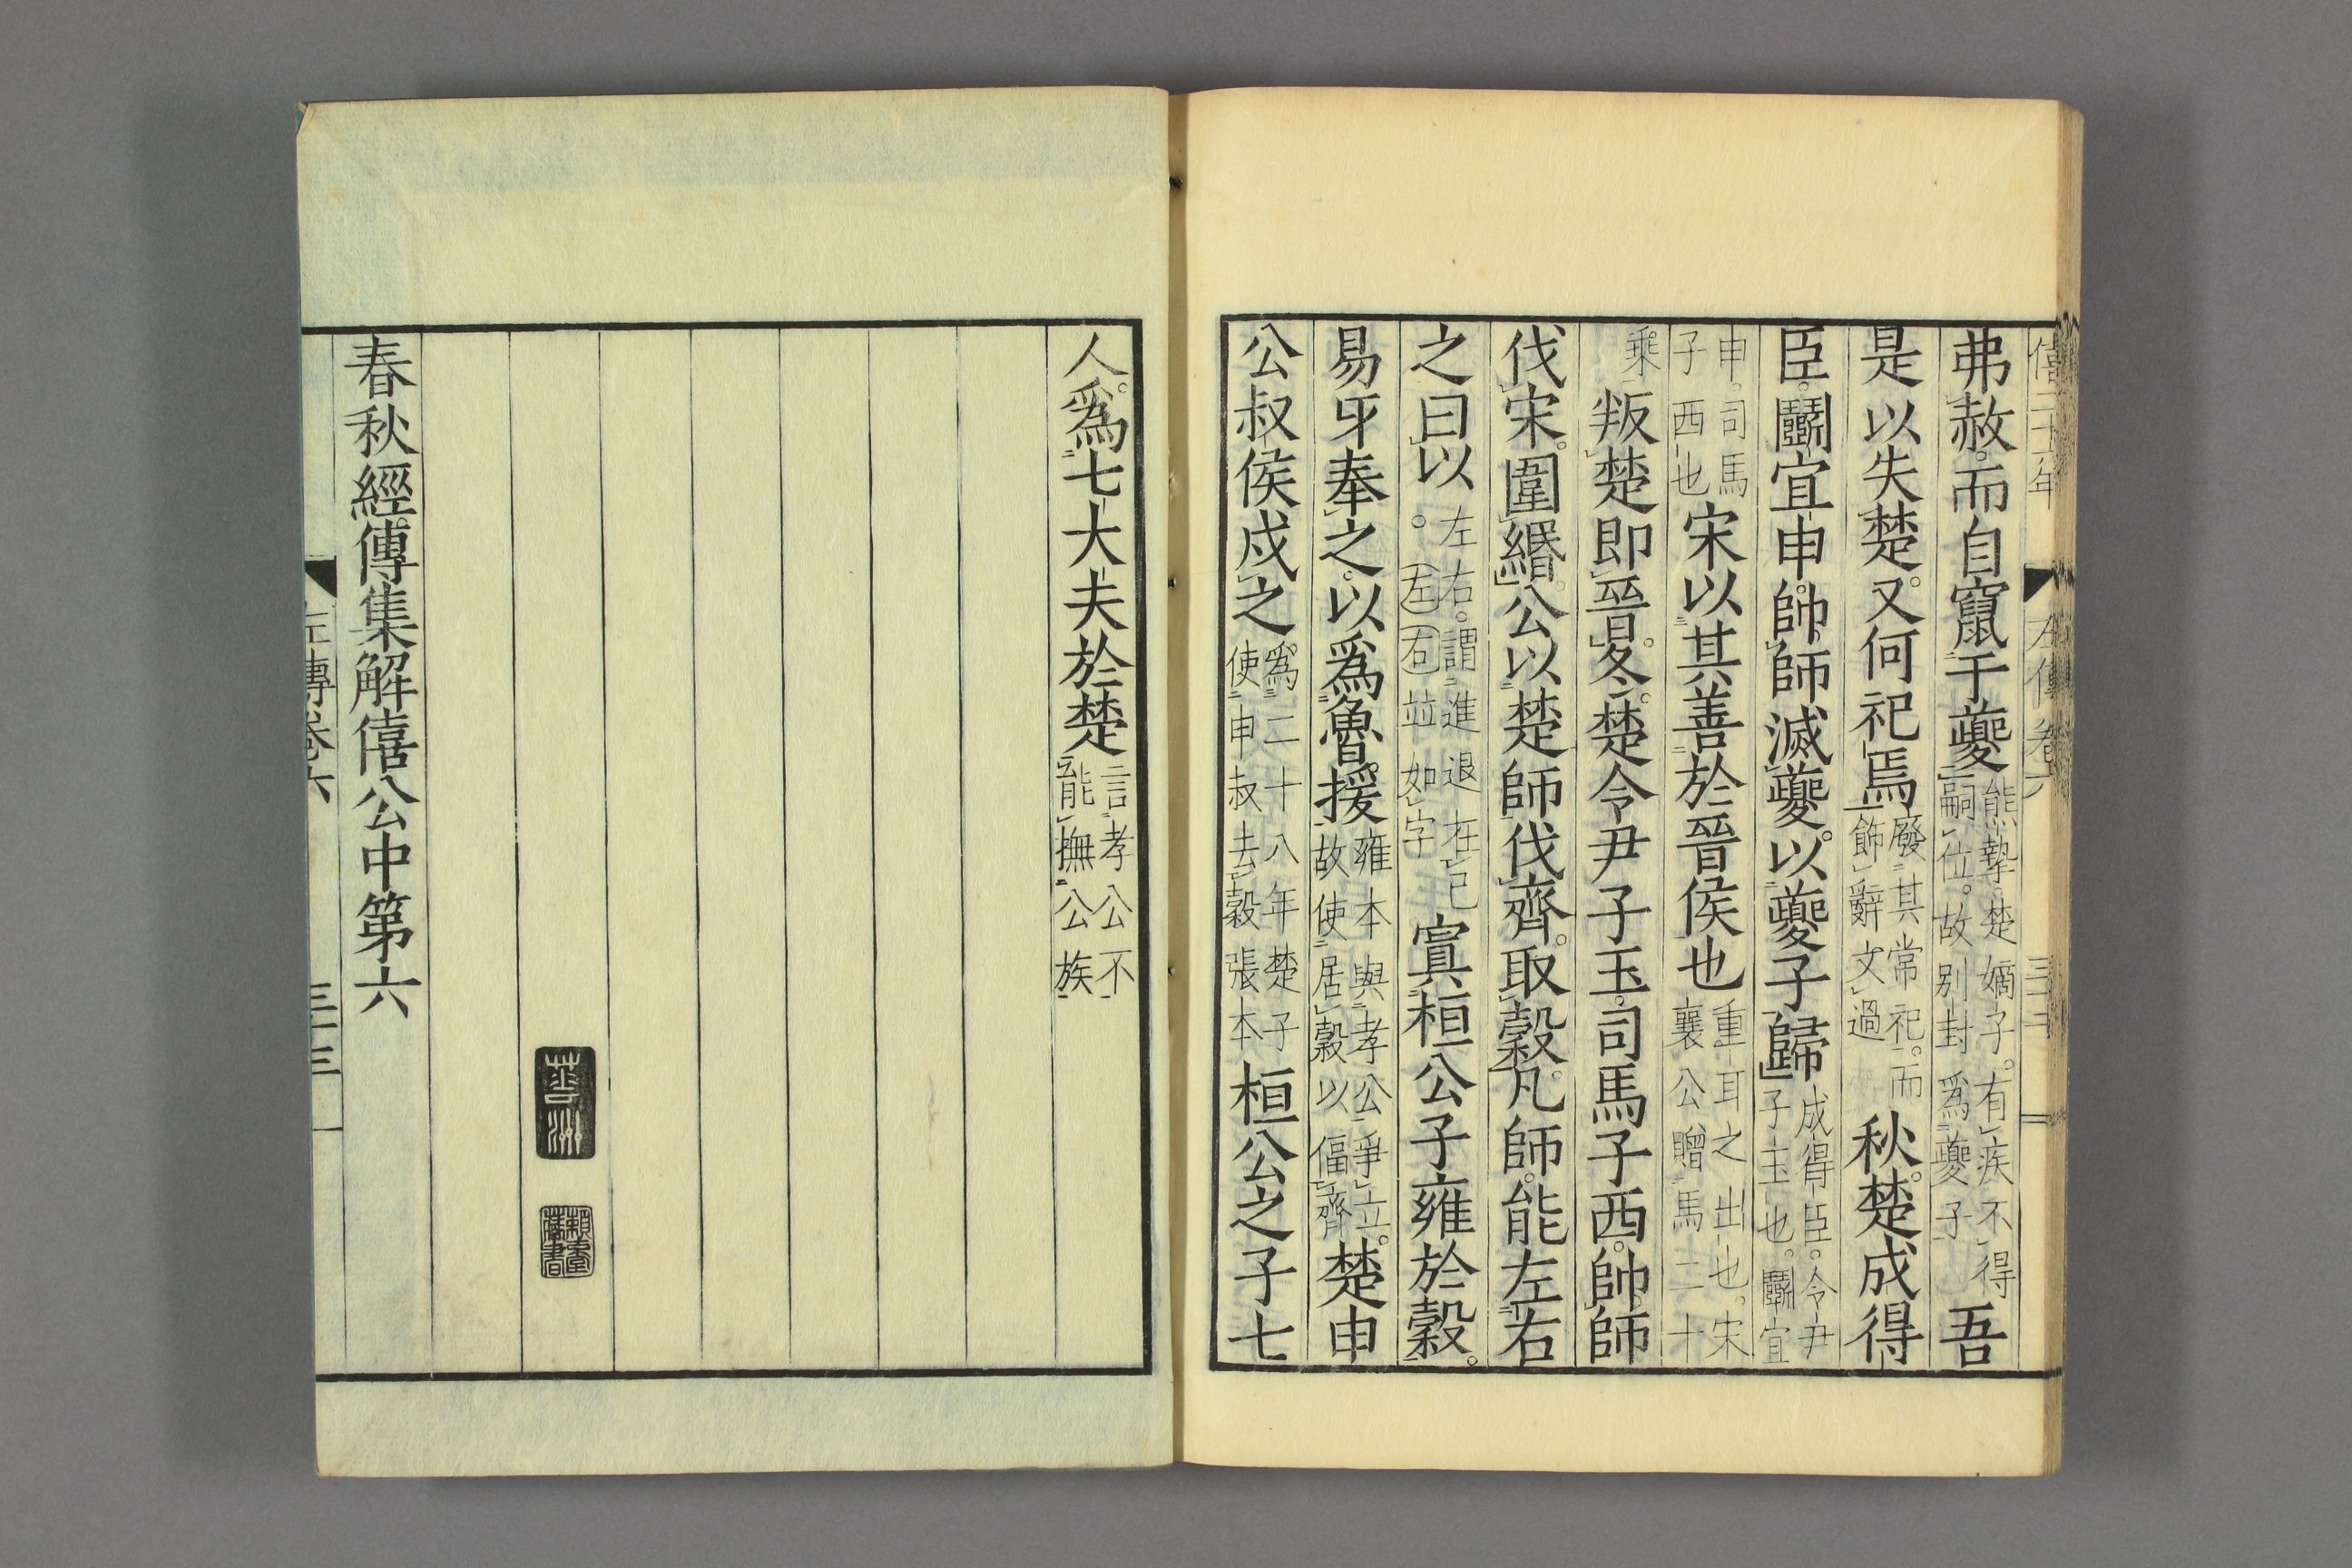 弗赦。而自竄于夔熊摯。楚嫡子。有疾不得嗣位。故别封爲夔子吾
是以失楚。又何祀焉廢其常祀。而飾辭文過秋。楚成得
臣。鬬宜申。帥師滅夔。以夔子歸成得臣。令尹子玉也。鬬宜
申。司馬子西也宋以其善於晉侯也重耳之出也。宋襄公贈馬二十
乘叛楚即晉。冬。楚令尹子玉。司馬子西。帥師
伐宋。圍緡。公以楚師伐齊。取穀。凡師。能左右
之曰以。左右。謂進退在己左右並如字寘桓公子雍於穀。
易牙奉之。以爲魯援雍本與孝公爭立。故使居穀以偪齊楚申
公叔侯戍之爲二十八年楚子使申叔去穀張本桓公之子七
人。爲七大夫於楚言孝公不能撫公族
春秋經傳集解僖公中第六
左傳卷六
三十三